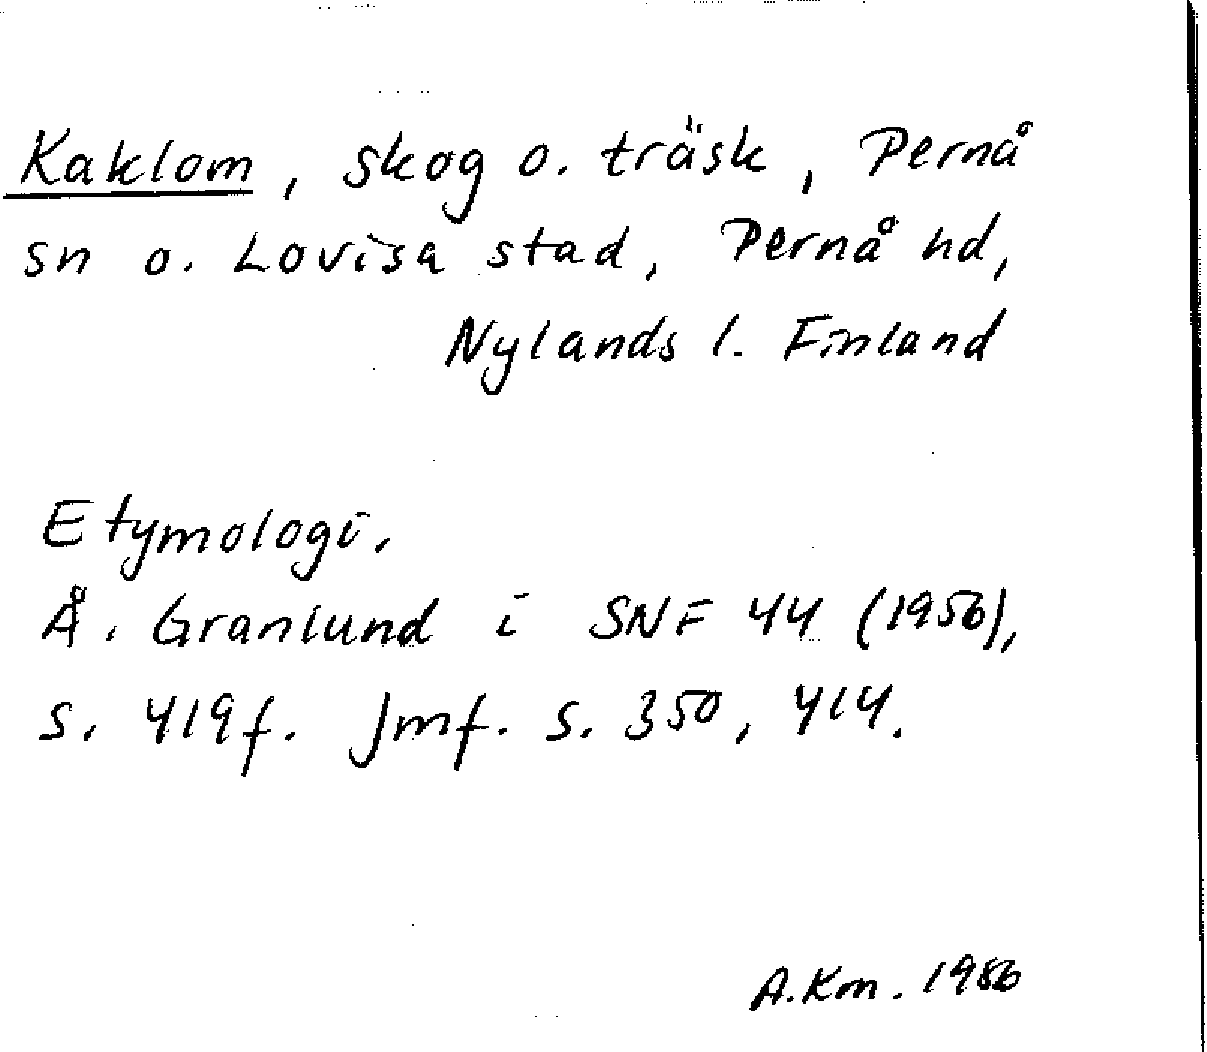 Kaklom, skog o. träsk, Pernå
sn o. Lovisa stad, Pernå hd,
Nylands l. Finland
Etymologi.
Å. Granlund i SNF 44 (1956),
s. 419f. Jmf. s. 350, 414.
A.Km. 1986